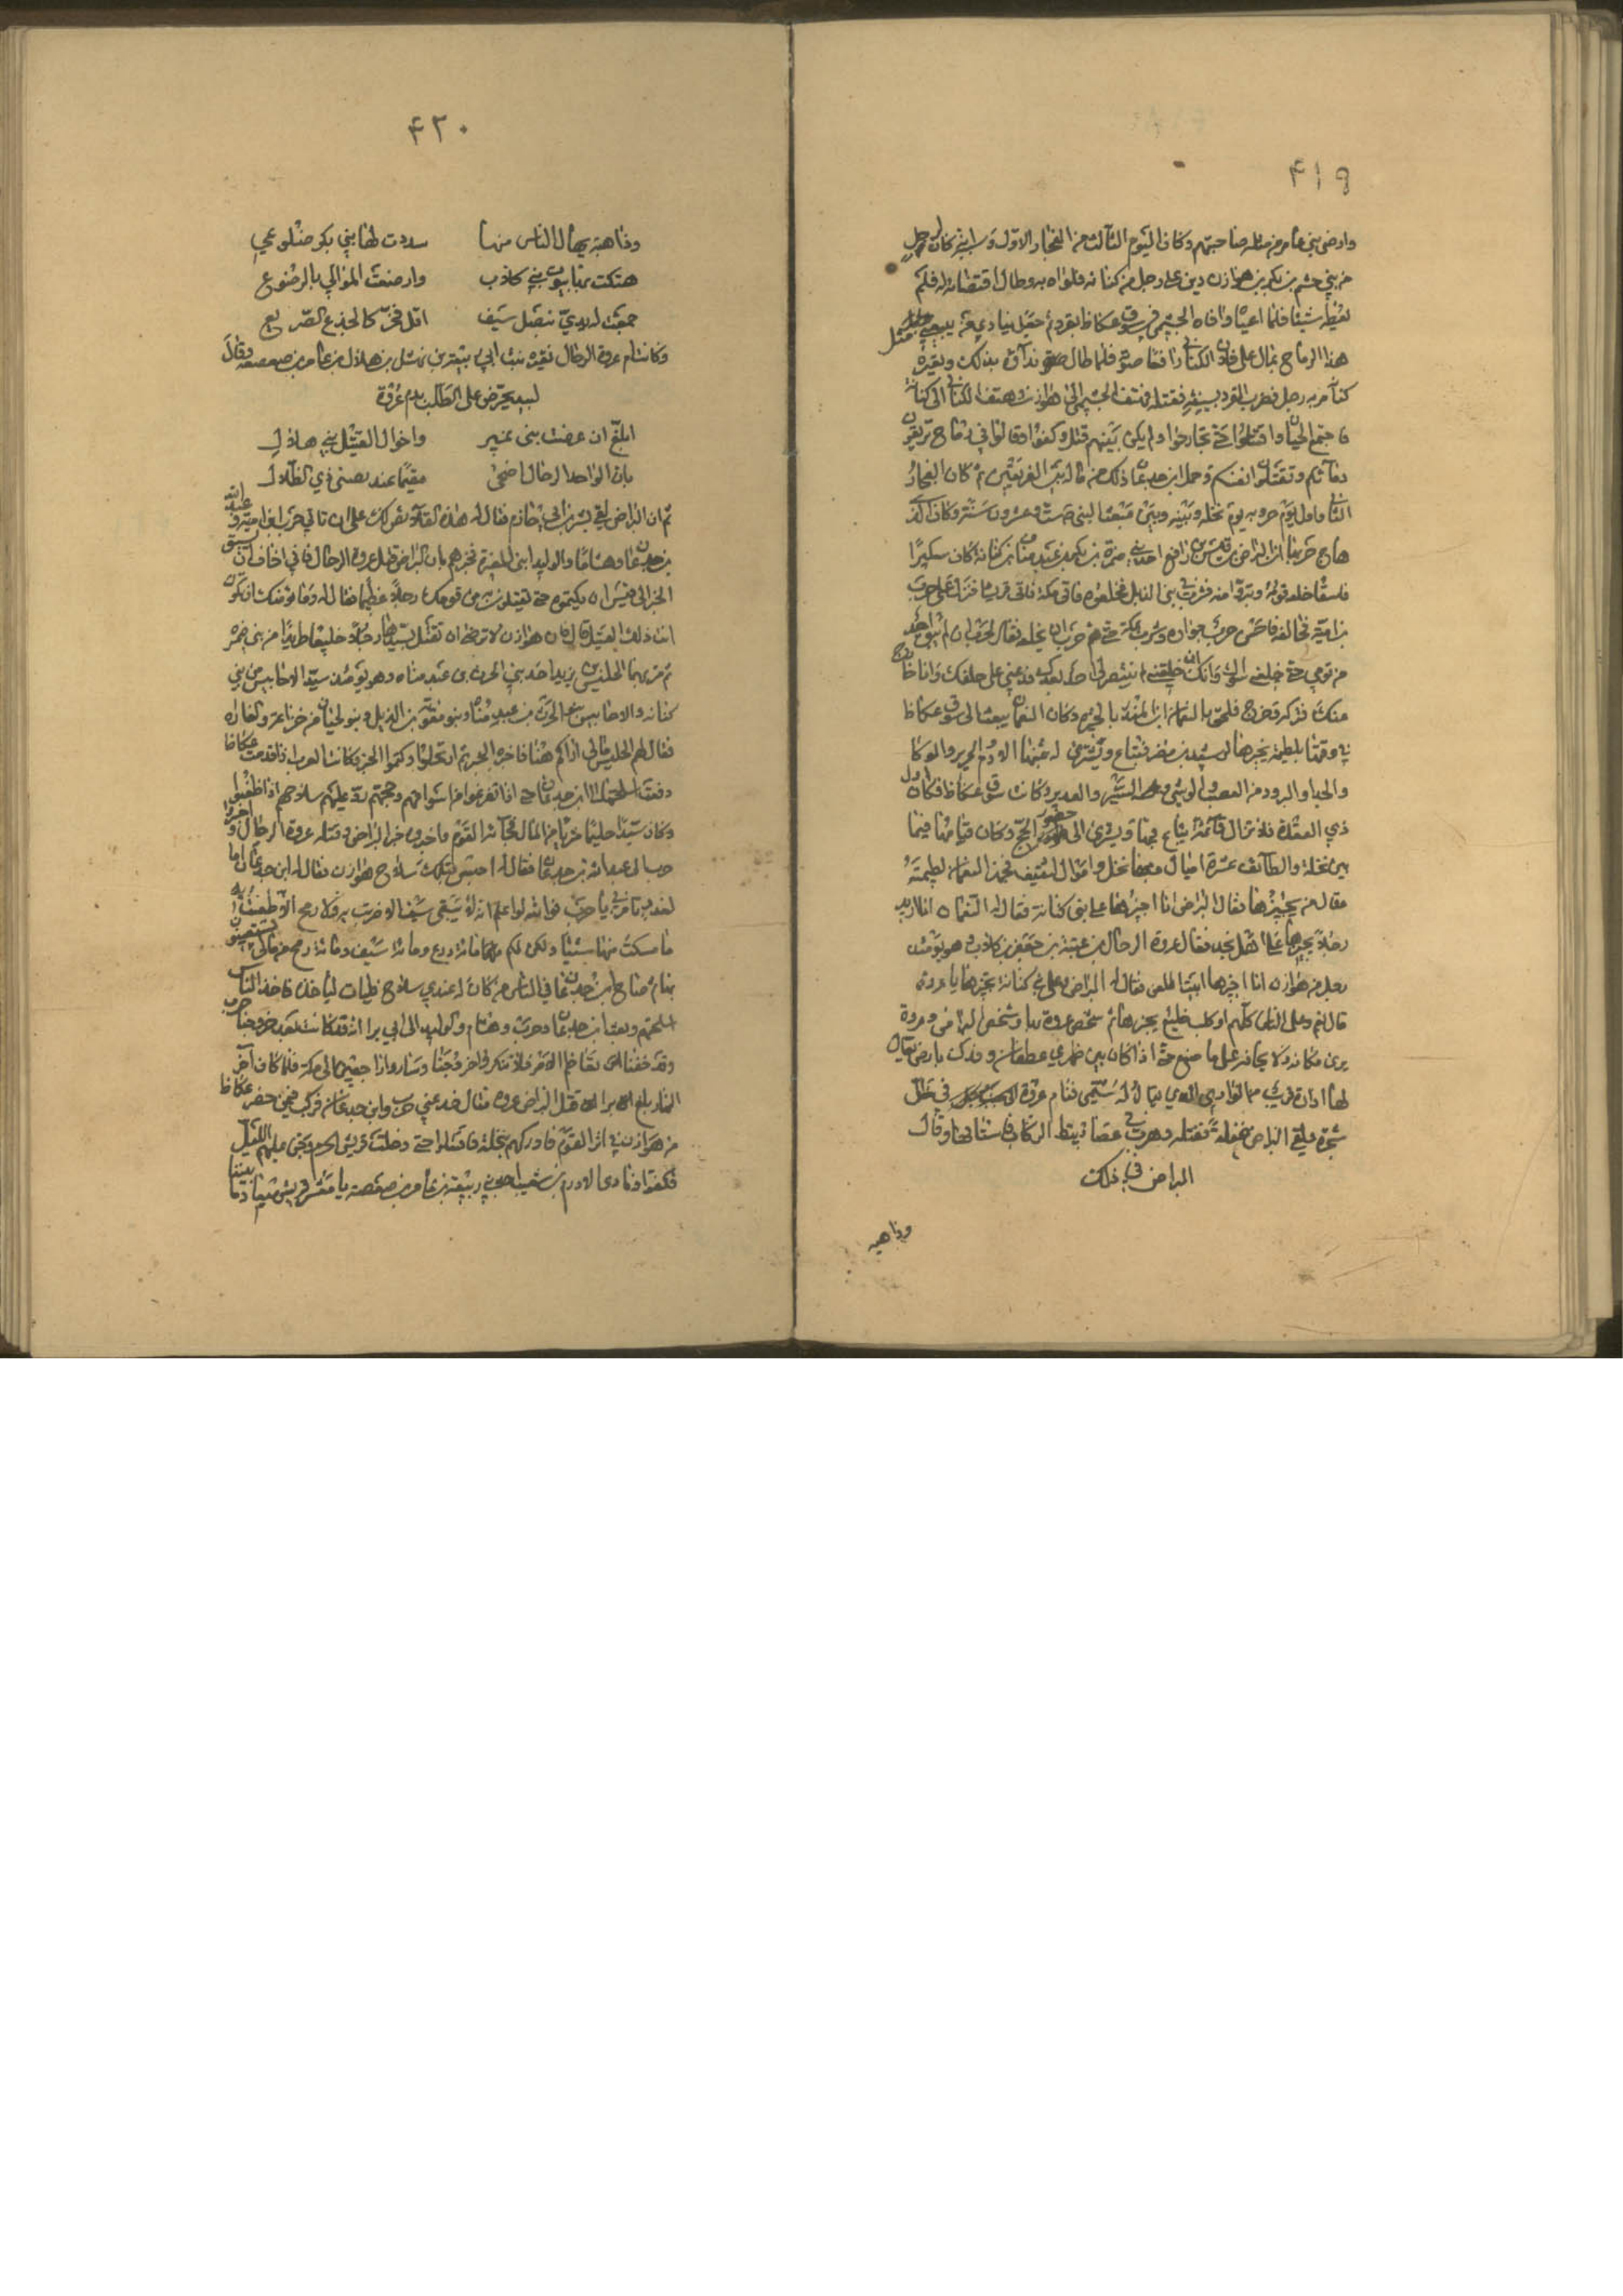 ٤١٩
وارضى بني عامر من مثلة صاحبتهم وكان اليوم الثالث من الفجار الاول وسببه انه كان لرجل
من بني جشم بن بكر بن هوازن دين على رجل من كنانة فلواه به وطال اقتضاؤه اياه فلم
يعطه شيئا فلما اعياه وافاه الجشمي في سوق عكاظ بقرد ثم جعل ينادي من يبيعني مثل
هذا الرباح بمالي على فلان الكناني رافعا صوته فلما طال نداؤه بذلك وتعييره
كنانة مر به رجل فضرب القرد بسيفه فقتله فهتف الجشمي يال هوازن وهتف الكناني يال كنانة
فاجتمع الحيان واقتتلوا حتى تحاجزوا ولم يكن بينهم قتلى وكفوا وقالوا أفي رباح تريقون
دمائكم وتقتلون انفسكم وحمل ابن جدعان ذلك من ماله بين الفريقين ثم كان الفجار
الثاني واول يوم حروبه يوم نخلة وبينه وبين مبعث النبي ست وعشرون سنة وكان الذي
هاج حربها ان البراض بن قيس بن رافع احد بني ضمرة بن بكر بن عبد مناة بن كنانة كان سكيرا
فاسقا خلعه قومه وتبرؤا منه فشرب في بني الديل فخلعوه فاتى مكة فاتى قريشا فنزل على حرب
بن امية فحالفه فاحسن حرب جواره وشرب بمكة حتى هم حرب ان يخلعه فقال لحرب انه لم يبق احد
من قومي حتى خلعني سواك وانك ان خلعتني لم ينتصر لي احد بعدك فدعني على حلفك وانا خارج
عنك فتركه وخرج فلحق بالنعمان بن المنذر بالحيرة وكان النعمان يبعث الى سوق عكاظ
في وقتها بلطيمة يجيزها له سيد مضر فتباع ويشترى له بثمنها الادم والحرير والوكا
والحذا والبرود من العصب والوشي والمسير والعدني وكانت سوق عكاظ في اول
ذي القعدة فلا تزال قائمة يباع فيها ويشترى الى حضور الحج وكان قيامها فيما
بين نخلة والطائف عشرة اميال وبها نخل واموال لثقيف فجهز النعمان لطيمته
فقال من يجيزها فقال البراض انا اجيزها على بني كنانة فقال له النعمان انما اريد
رجلا يجيزها على اهل نجد فقال عروة الرحال بن عتبة بن جعفر بن كلاب وهو يومئذ
رجل من هوازن انا اجيزها ابيت اللعن فقال له البراض وعلى كنانة تجيزها يا عروة
قال نعم وعلى الناس كلهم أو كلب خليع يجيزها ثم شخص عروة بها وشخص البراض وعروة
يرى مكانه ولا يخافه على ما صنع حتى اذا كان بين ظهري غطفان وفدك بارض يقال
لها اوارة قريب من الوادي الذي يقال له تيمن نام عروة في ظل
شجرة فلقي البراض غفلة فقتله وهرب في عضاريط الركاب فاستاقها وقال
البراض في ذلك
وداهية
٤٢٠
وداهية يهال الناس منها
شددت لها بني بكر ضلوعي
هتكت بها بيوت بني كلاب
وارضعت الموالي بالرضوع
جمعت له يدي بنصل سيف
افل فخر كالجذع الصريع
وكانت ام عروة الرحال نفيرة بنت ابي ربيعة بن نهشل بن هلال بن عامر بن صعصعة فقال
لبيد يحرض على الطلب بدم عروة
ابلغ ان عرضت بني نمير
واخوال القتيل بني هلال
بان الوافد الرحال اضحى
مقيما عند تيمن ذي الظلال
ثم ان البراض لقي بشر بن ابي خازم فقال له هذه القلائص لك على ان تاتي حرب بن امية وعبد الله
بن جدعان وهشاما والوليد ابني المغيرة فتخبرهم بان البراض قتل عروة الرحال فاني اخاف ان يسبق
الخبر الى قيس ان يكتموه حتى يقتلوا به من قومك رجلا عظيما فقال له وما يؤمنك ان تكون
انت ذلك القتيل قال ان هوازن لا ترضى ان تقتل بسيدها رجلا خليعا طريدا من بني ضمرة
ثم مر بهما الحليس بن يزيد احد بني الحرث بن عبد مناة وهو يومئذ سيد الاحابيش من بني
كنانة والاحابيش بنو الحرث بن عبد مناة وبنو نفاثة بن الديل وبنو لحيان من خزاعة والقارة
فقال لهم الحليس ما لي اراكم ههنا فاخبروه الخبر ثم ارتحلوا وكتموا الخبر وكانت العرب اذا قدمت عكاظ
دفعت اسلحتها الى ابن جدعان حتى اذا تفرغوا من اسواقهم وحجتهم رد عليهم سلاحهم اذا ظعنوا
وكان سيدا حليما مثريا من المال فجاءه القوم واخبروه خبر البراض وقتله عروة الرحال واخبر
حرب الى عبد الله بن جدعان فقال له احتبس قبلك سلاح هوازن فقال له ابن جدعان اما
لغدر تامرني يا حرب فوالله لو اعلم انه لا يبقى سيف الا ضربت به ولا رمح الا طعنت به
ما امسكت منها شيئا ولكن لكم مائة درع ومائة سيف ومائة رمح من مالي تستعينون
بها ثم صاح ابن جدعان في الناس من كان له عندي سلاح فليات لياخذه فاخذ الناس
اسلحتهم وبعث ابن جدعان وحرب وهشام والوليد الى ابي براء انه قد كان بعد خروجنا حرب
وقد خفنا تفاقم الامر فلا تنكر خروجنا وساروا راجعين الى مكة فلما كان آخر
النهار بلغ ابا براء قتل البراض عروة فقال خدعني حرب وابن جدعان فركب فيمن حضر عكاظ
من هوازن في اثر القوم فادركهم بنخلة فاقتتلوا حتى دخلت قريش الحرم وجن عليهم الليل
فكفوا ونادى الادرم بن شعيب احد بني ربيعة بن عامر بن صعصعة يا معشر قريش ميعاد ما بيننا